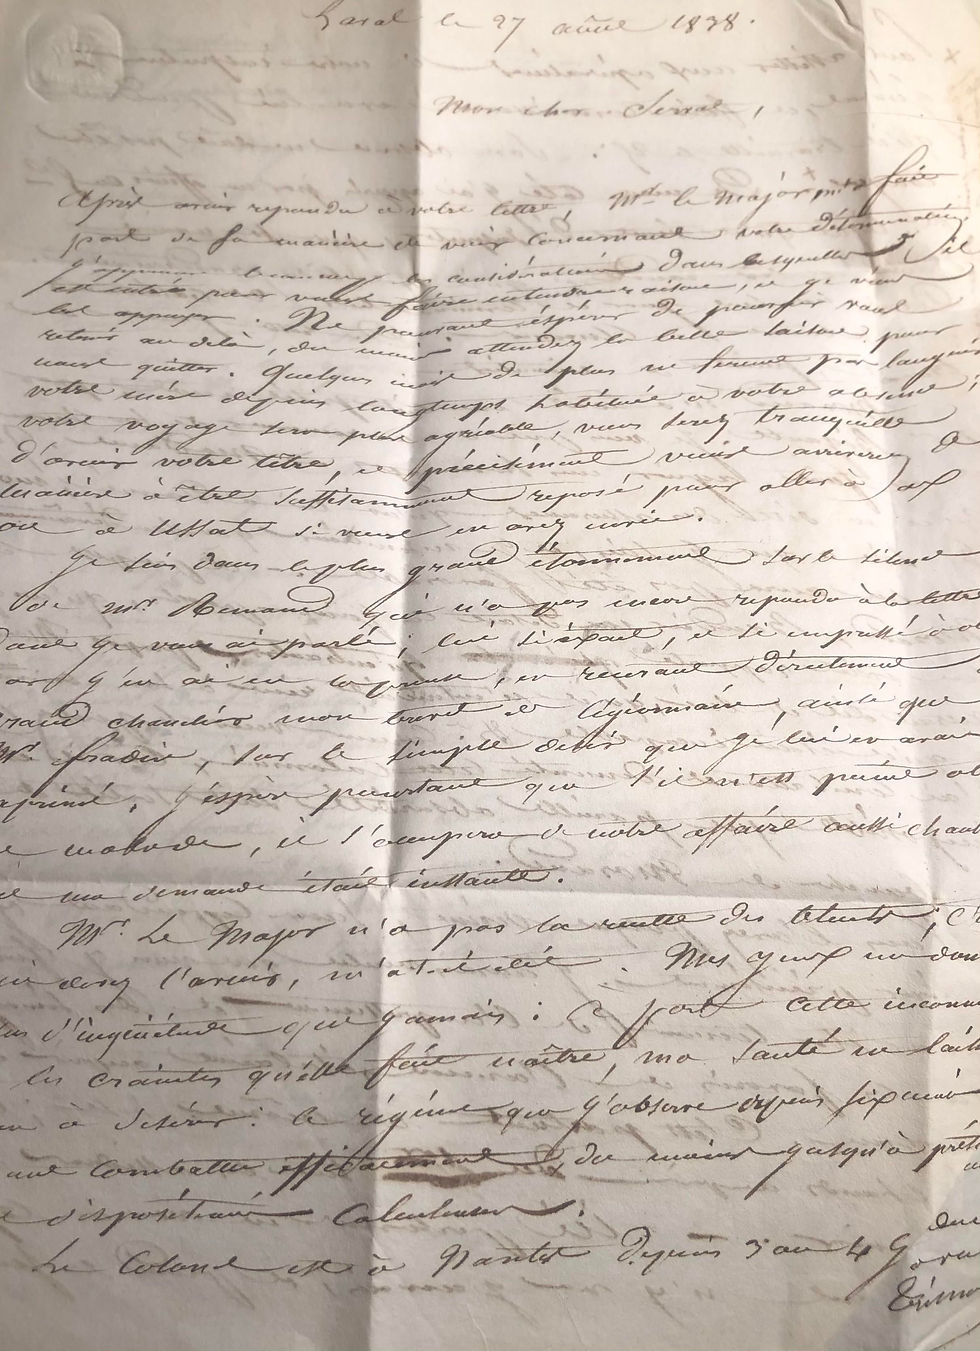 Laval le 27 août 1838.
Mon cher Serval,
Après avoir repondu à votre lettre, Mr. le Major m'a fait
part de sa manière de voir concernant votre détermination
J'approuve beaucoup les considérations dans lesquelles il
est entré pour vous faire entendre raison, et je viens
les appuyer. Ne pouvant espérer de pouvoir vous
retenir au delà, du moins attendez la belle saison pour
nous quitter. Quelques mois de plus ne seront pas longs
votre mère depuis longtemps habituée à votre absence,
votre voyage sera plus agréable, vous serez tranquille
d'avoir votre titre, et précisément vous arriverez de
manière à être suffisamment reposé pour aller à
ou à Ussat si vous en avez envie.
Je suis dans le plus grand étonnement sur le silence
de Mr. Renaud qui n'a pas encore repondu à la lettre
dont je vous ai parlé; lui si exact, et si empressé à
j'en ai eu la preuve, en recevant directement
grand chancelier mon brevet de légionnaire, ainsi que
Mr. fradin, sur le simple désir que je lui en avais
exprimé. J'espère pourtant que s'il n'est point
malade, il s'occupera de notre affaire aussi
ma demande était instante.
Mr. Le Major n'a pas la recette des
l'avoir, m'a-t-il dit. Mes yeux me
d'inquiétude que jamais: à part cette
les craintes qu'elle fait naître, ma santé ne laisse
à désirer: le régime que j'observe depuis six mois
combattu efficacement, du moins jusqu'à
disposition calculeuse.
Le Colonel est à Nantes depuis 3 ou 4 J